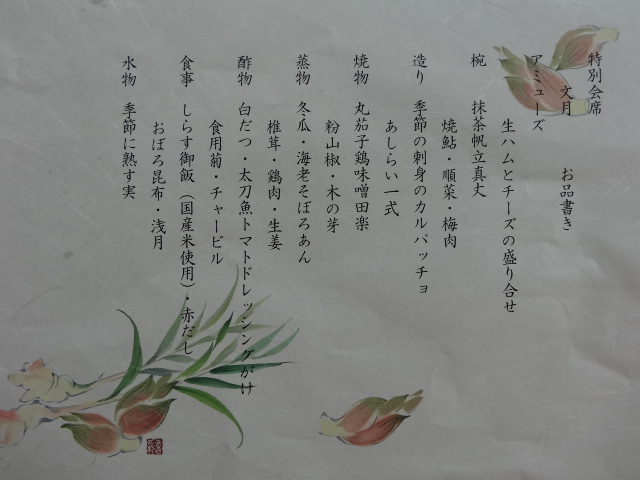 特別会席
文月　お品書き
アミューズ
生ハムとチーズの盛り合せ
椀　抹茶帆立真丈
焼鮎・順菜・梅肉
造り　季節の刺身のカルパッチョ
あしらい一式
焼物　丸茄子鶏味噌田楽
粉山椒・木の芽
蒸物　冬瓜・海老そぼろあん
椎茸・鶏肉・生姜
酢物　白だつ・太刀魚トマトドレッシングがけ
食用菊・チャービル
食事　しらす御飯（国産米使用）・赤だし
おぼろ昆布・浅月
水物　季節に熟す実